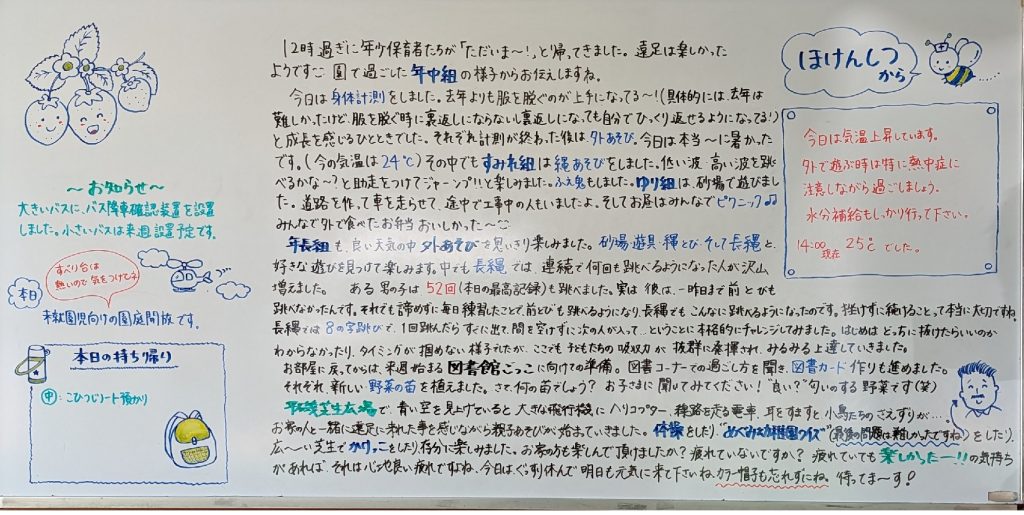 12時過ぎに年少保育者たちが「ただいま～!」と帰ってきました。遠足は楽しかった
ようです 園で過ごした年中組の様子からお伝えしますね。
今日は身体計測をしました。去年よりも服を脱ぐのが上手になってる～!(具体的には、去年は
難しかったけど、服を脱ぐ時に裏返しにならない!裏返しになっても自分でひっくり返せるようになってる!)
と成長を感じるひとときでした。それぞれ計測が終わった後は、外あそび。今日は本当～に暑かった
です。(今の気温は24℃)その中でもすみれ組は縄あそびをしました。低い波、高い波を跳
べるかな～?と助走をつけてジャーンプ!!と楽しみました。ふえ鬼もしました。ゆり組は、砂場で遊びまし
た。道路を作って車を走らせて、途中で工事中の人もいましたよ。そしてお昼はみんなでピクニック♫
みんなで外で食べたお弁当おいしかった～
年長組も、良い天気の中外あそびを思いきり楽しみました。砂場・遊具・縄とび・そして長縄と、
好きな遊びを見つけて楽しみます。中でも長縄では、連続で何回も跳べるようになった人が沢山
増えました。 ある男の子は52回(本日の最高記録)も跳べました。実は彼は、一昨日まで前とびも
跳べなかったんです。それでも諦めずに毎日練習したことで前とびも跳べるようになり、長縄でもこんなに跳べるようになったのです。挫けずに続けることって本当に大切ですね。
長縄では8の字跳びで、1回跳んだらすぐに出て、間を空けずに次の人が入って…ということに本格的にチャレンジしてみました。はじめはどっちに抜けたらいいのか
わからなかったり、タイミングが掴めない様子でしたが、ここでも子どもたちの吸収力が抜群に発揮され、みるみる上達していきました。
お部屋に戻ってからは、来週始まる図書館ごっこに向けての準備。図書コーナーでの過ごし方を聞き、図書カード作りも進めました。
それぞれ新しい野菜の苗を植えました。さて、何の苗でしょう?お子さまに聞いてみてください!"良い?"匂いのする野菜です(笑)
芝生広場で、青い空を見上げていると大きな飛行機にヘリコプター、線路を走る電車、耳をすますと小鳥たちのさえずりが…。
お家の人と一緒に遠足に来れた事を感じながら親子あそびが始まっていきました。体操をしたり"めぐみ幼稚園クイズ"(最後の問題は難しかったですね)をしたり、
広～い芝生でかけっこをしたり存分に楽しみました。お家の方も楽しんで頂けましたか?疲れていないですか?疲れていても楽しかったー!!の気持ち
があれば、それは心地良い疲れですね。今日はぐっすり休んで明日も元気に来て下さいね。カラー帽子も忘れずにね。待ってま～す!
～お知らせ～
大きいバスに、バス降車確認装置を設置
しました。小さいバスは来週設置予定です。
すべり台は
熱いので気をつけてネ
本日
未就園児向けの園庭開放です。
本日の持ち帰り
中:こひつじノート預かり
ほけんしつ
から
今日は気温上昇しています。
外で遊ぶ時は特に熱中症に
注意しながら過ごしましょう。
水分補給もしっかり行って下さい。
14:00現在 25℃でした。